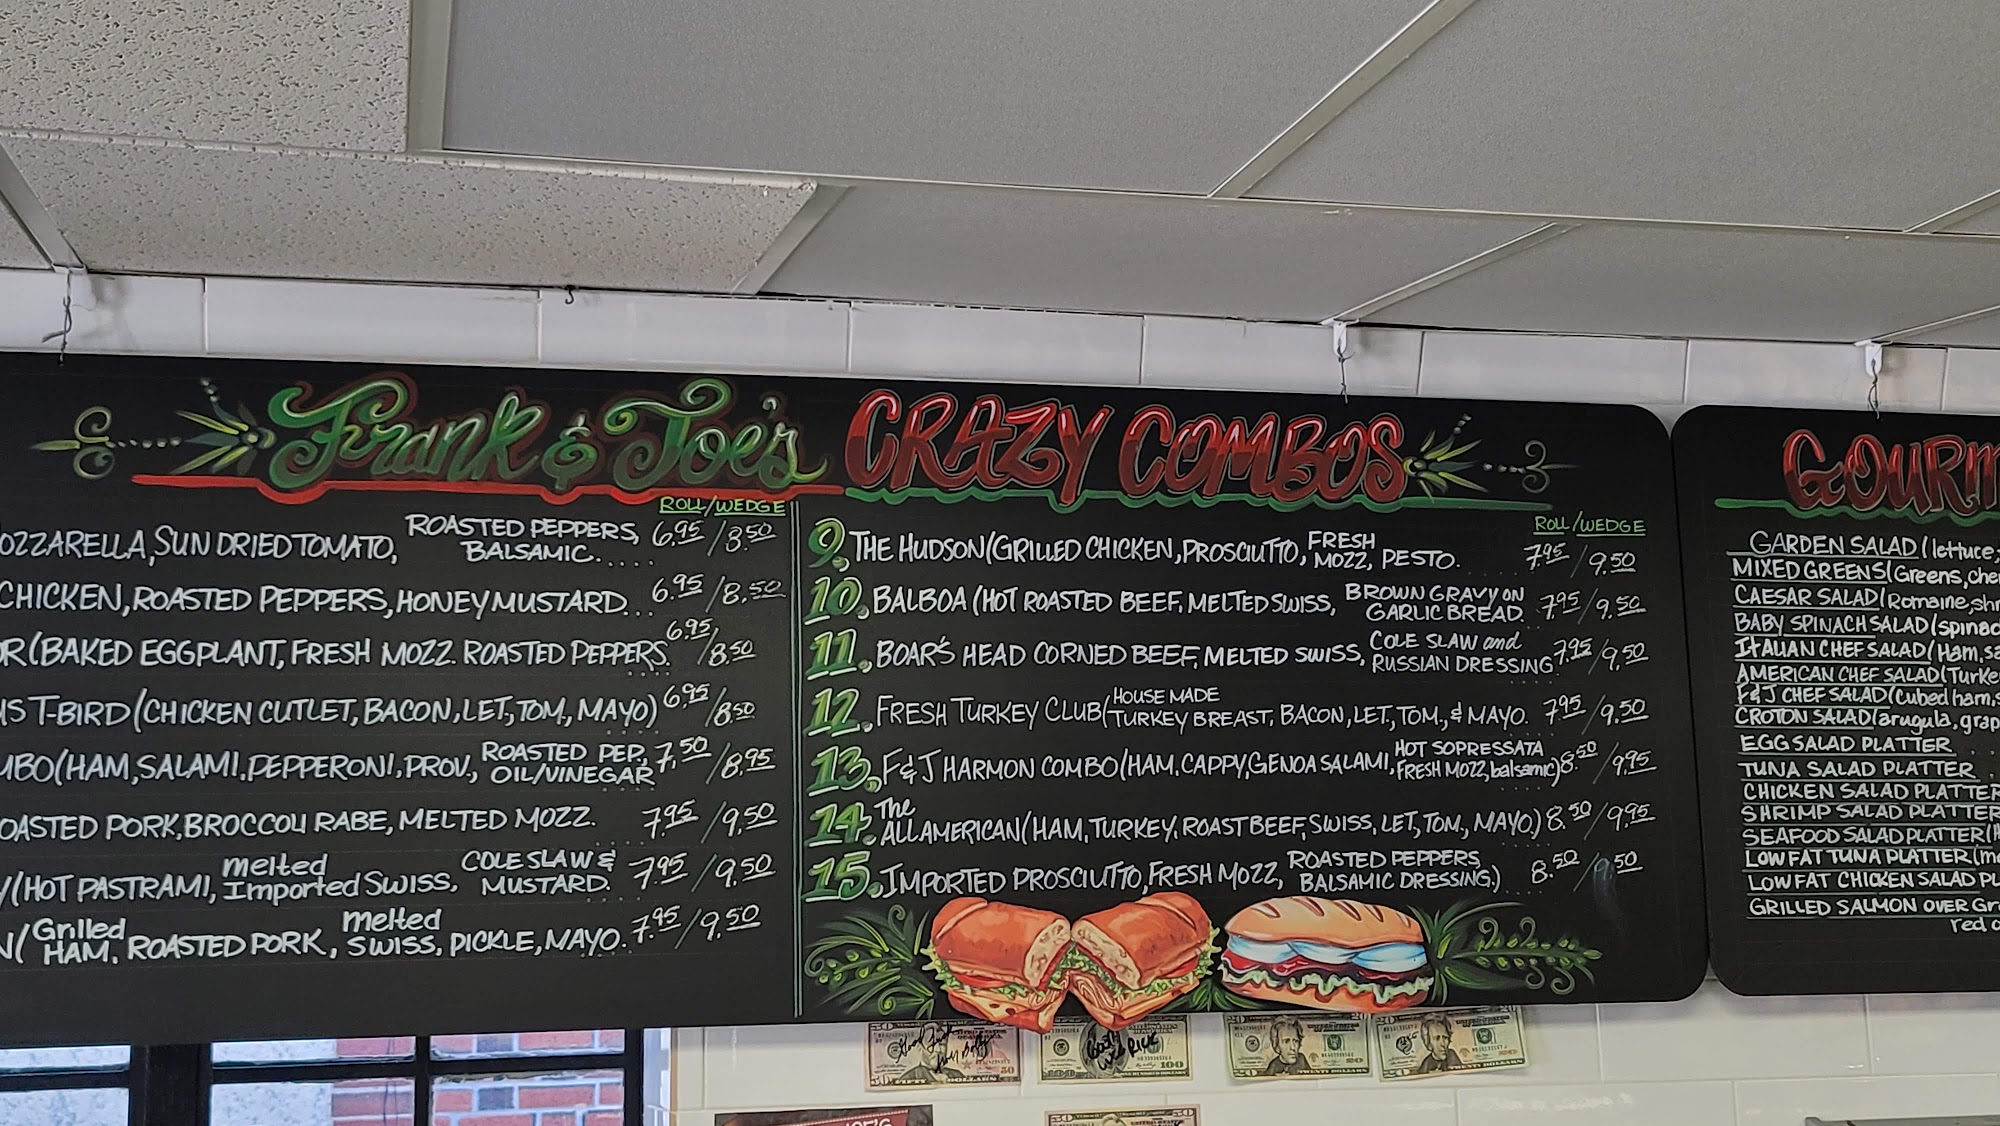 Frank & Joe's CRAZY COMBOS
ROLL/WEDGE
OZZARELLA, SUN DRIED TOMATO, ROASTED PEPPERS, BALSAMIC..... 6.95/8.50
CHICKEN, ROASTED PEPPERS, HONEY MUSTARD... 6.95/8.50
OR (BAKED EGGPLANT, FRESH MOZZ. ROASTED PEPPERS. 6.95/8.50
US T-BIRD (CHICKEN CUTLET, BACON, LET, TOM, MAYO) 6.95/8.50
MBO (HAM, SALAMI, PEPPERONI, PROV., ROASTED PEP, OIL/VINEGAR 7.50/8.95
OASTED PORK, BROCCOLI RABE, MELTED MOZZ. 7.95/9.50
Y (HOT PASTRAMI, melted Imported SWISS, COLE SLAW & MUSTARD. 7.95/9.50
N (Grilled HAM, ROASTED PORK, melted SWISS, PICKLE, MAYO. 7.95/9.50
ROLL/WEDGE
9. THE HUDSON (GRILLED CHICKEN, PROSCIUTTO, FRESH MOZZ, PESTO. 7.95/9.50
10. BALBOA (HOT ROASTED BEEF, MELTED SWISS, BROWN GRAVY ON GARLIC BREAD. 7.95/9.50
11. BOAR'S HEAD CORNED BEEF, MELTED SWISS, COLE SLAW and RUSSIAN DRESSING 7.95/9.50
12. FRESH TURKEY CLUB (HOUSE MADE TURKEY BREAST, BACON, LET, TOM., & MAYO. 7.95/9.50
13. F&J HARMON COMBO (HAM, CAPPY, GENOA SALAMI, HOT SOPRESSATA FRESH MOZZ, balsamic) 8.50/9.95
14. The ALL AMERICAN (HAM, TURKEY, ROAST BEEF, SWISS, LET, TOM., MAYO.) 8.50/9.95
15. IMPORTED PROSCIUTTO, FRESH MOZZ, ROASTED PEPPERS BALSAMIC DRESSING.) 8.50/9.50
GOURM
GARDEN SALAD (lettuce,
MIXED GREENS (Greens, che
CAESAR SALAD (Romaine, shr
BABY SPINACH SALAD (spinac
ITALIAN CHEF SALAD (Ham, sa
AMERICAN CHEF SALAD (Turke
F&J CHEF SALAD (Cubed ham, s
CROTON SALAD (arugula, grap
EGG SALAD PLATTER
TUNA SALAD PLATTER
CHICKEN SALAD PLATTER
SHRIMP SALAD PLATTER
SEAFOOD SALAD PLATTER (
LOW FAT TUNA PLATTER (m
LOW FAT CHICKEN SALAD PL
GRILLED SALMON OVER Gr
red o
50
FIFTY DOLLARS
Good Luck
100
20
TWENTY DOLLARS
20
TWENTY DOLLARS
50
50